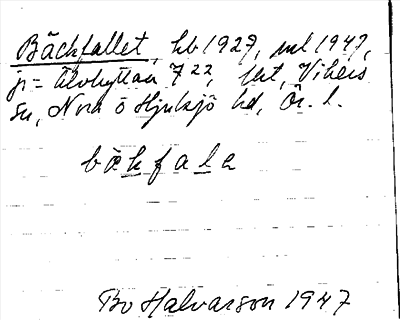 Bäckfallet, hb 1927, ml 1947,
jr = Älvhyttan 7²², lht, Vikers
sn, Nora o Hjulsjö hd, Ör. l.
bäkfala
Bo Halvarson 1947